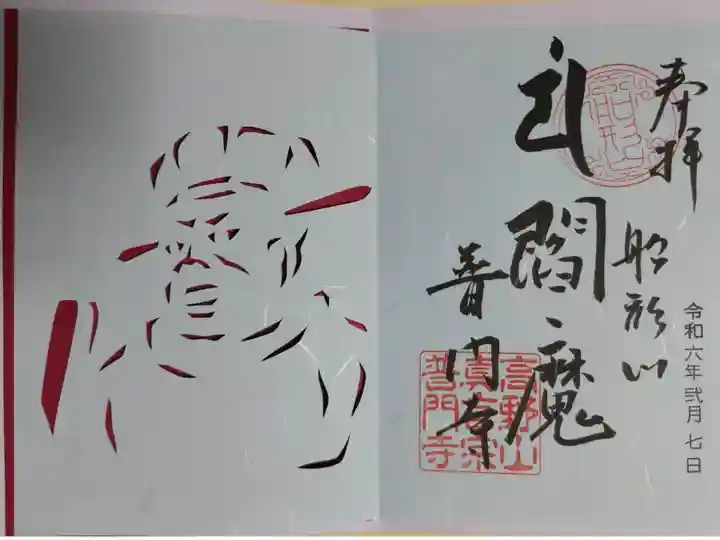 奉拝
船形山
閻魔
普門寺
令和六年弐月七日
高野山
真言宗
普門寺